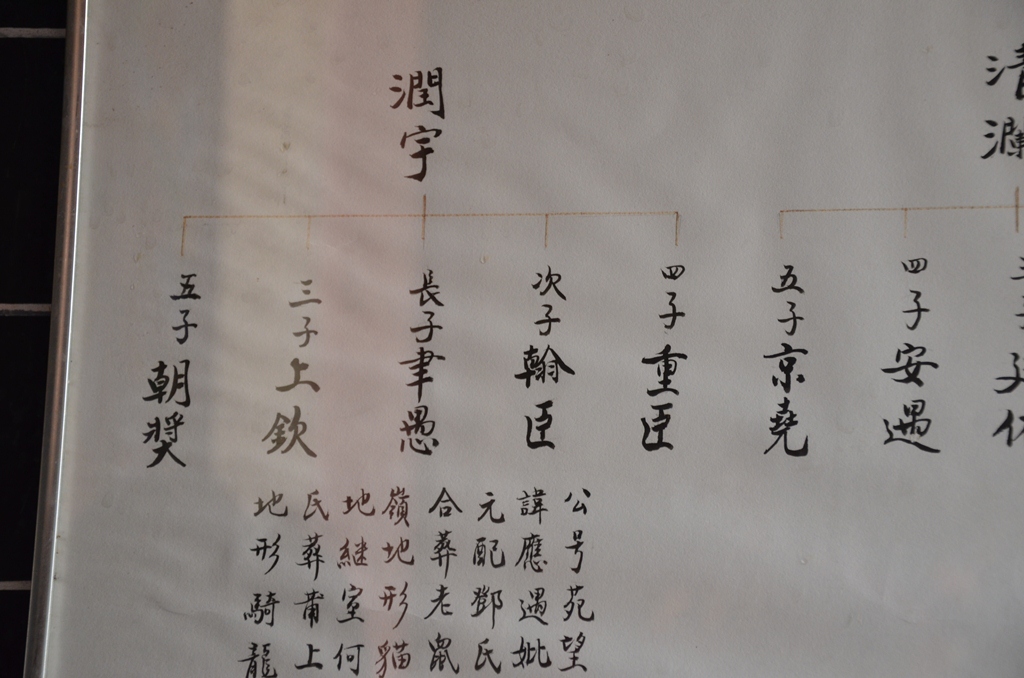 清
潤宇
四子重臣
次子翰臣
長子聿愚
三子上欽
五子朝奨
四子安遇
五子京堯
公号苑望
諱應遇妣
元配鄧氏
合葬老鼠
嶺地形貓
地継室何
氏葬莆上
地形騎龍